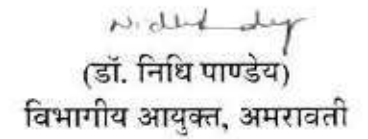 (डॉ. निधि पाण्डेय)
विभागीय आयुक्त, अमरावती